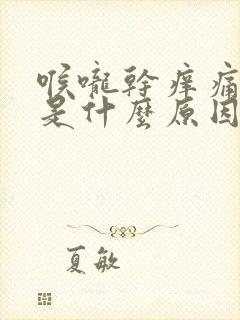 喉嚨幹痒痛
是什麼原因
夏敏